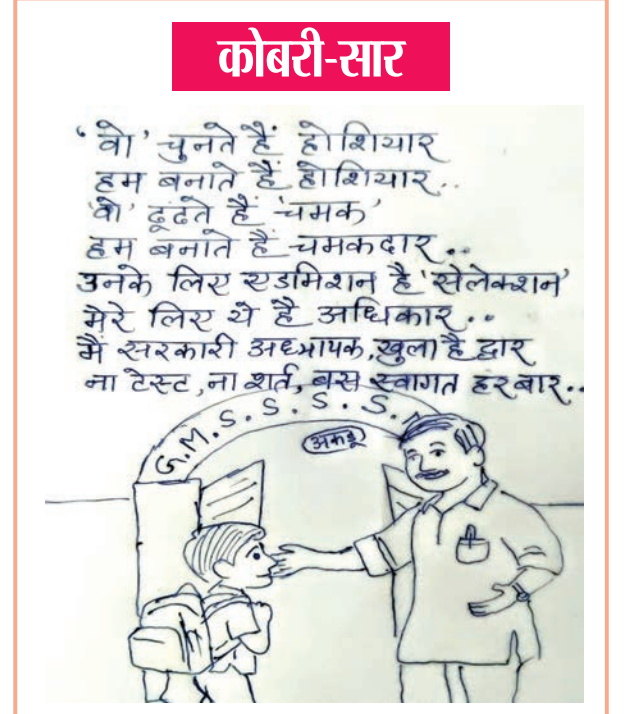 कोबरी-सार
'वो' चुनते हैं होशियार
हम बनाते हैं होशियार..
'वो' ढूंढते हैं 'चमक'
हम बनाते हैं चमकदार..
उनके लिए एडमिशन है 'सेलेक्शन'
मेरे लिए ये है अधिकार..
मैं सरकारी अध्यापक, खुला है द्वार
ना टेस्ट, ना शर्त, बस स्वागत हर बार..
G.M.S.S.S.S.